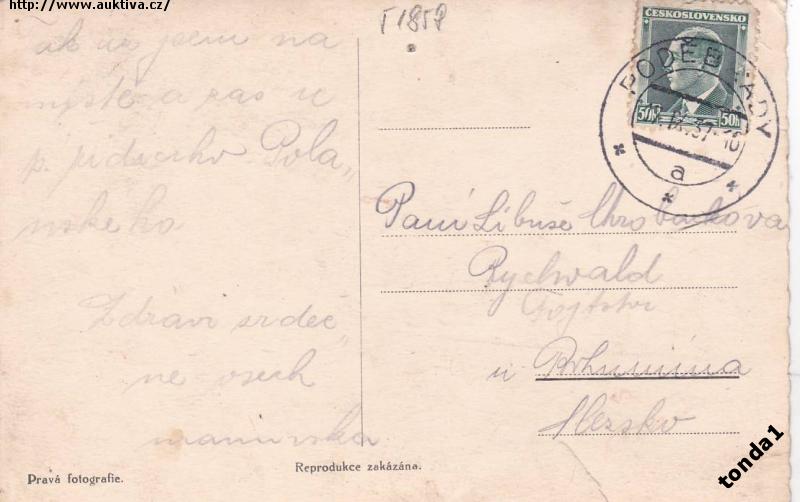 http://www.auktiva.cz/
T1858
ak už jsem na
místě a zas u
p. řídícího Pola„
nského
Zdraví srdeč„
ně všech
maminka
ČESKOSLOVENSKO
50h 50h
PODĚBRADY
37-16
a
Paní Libuše Chrobáková
Rychwald
Fojtství
u Bohumína
Slezsko
Pravá fotografie.
Reprodukce zakázána.
tonda1